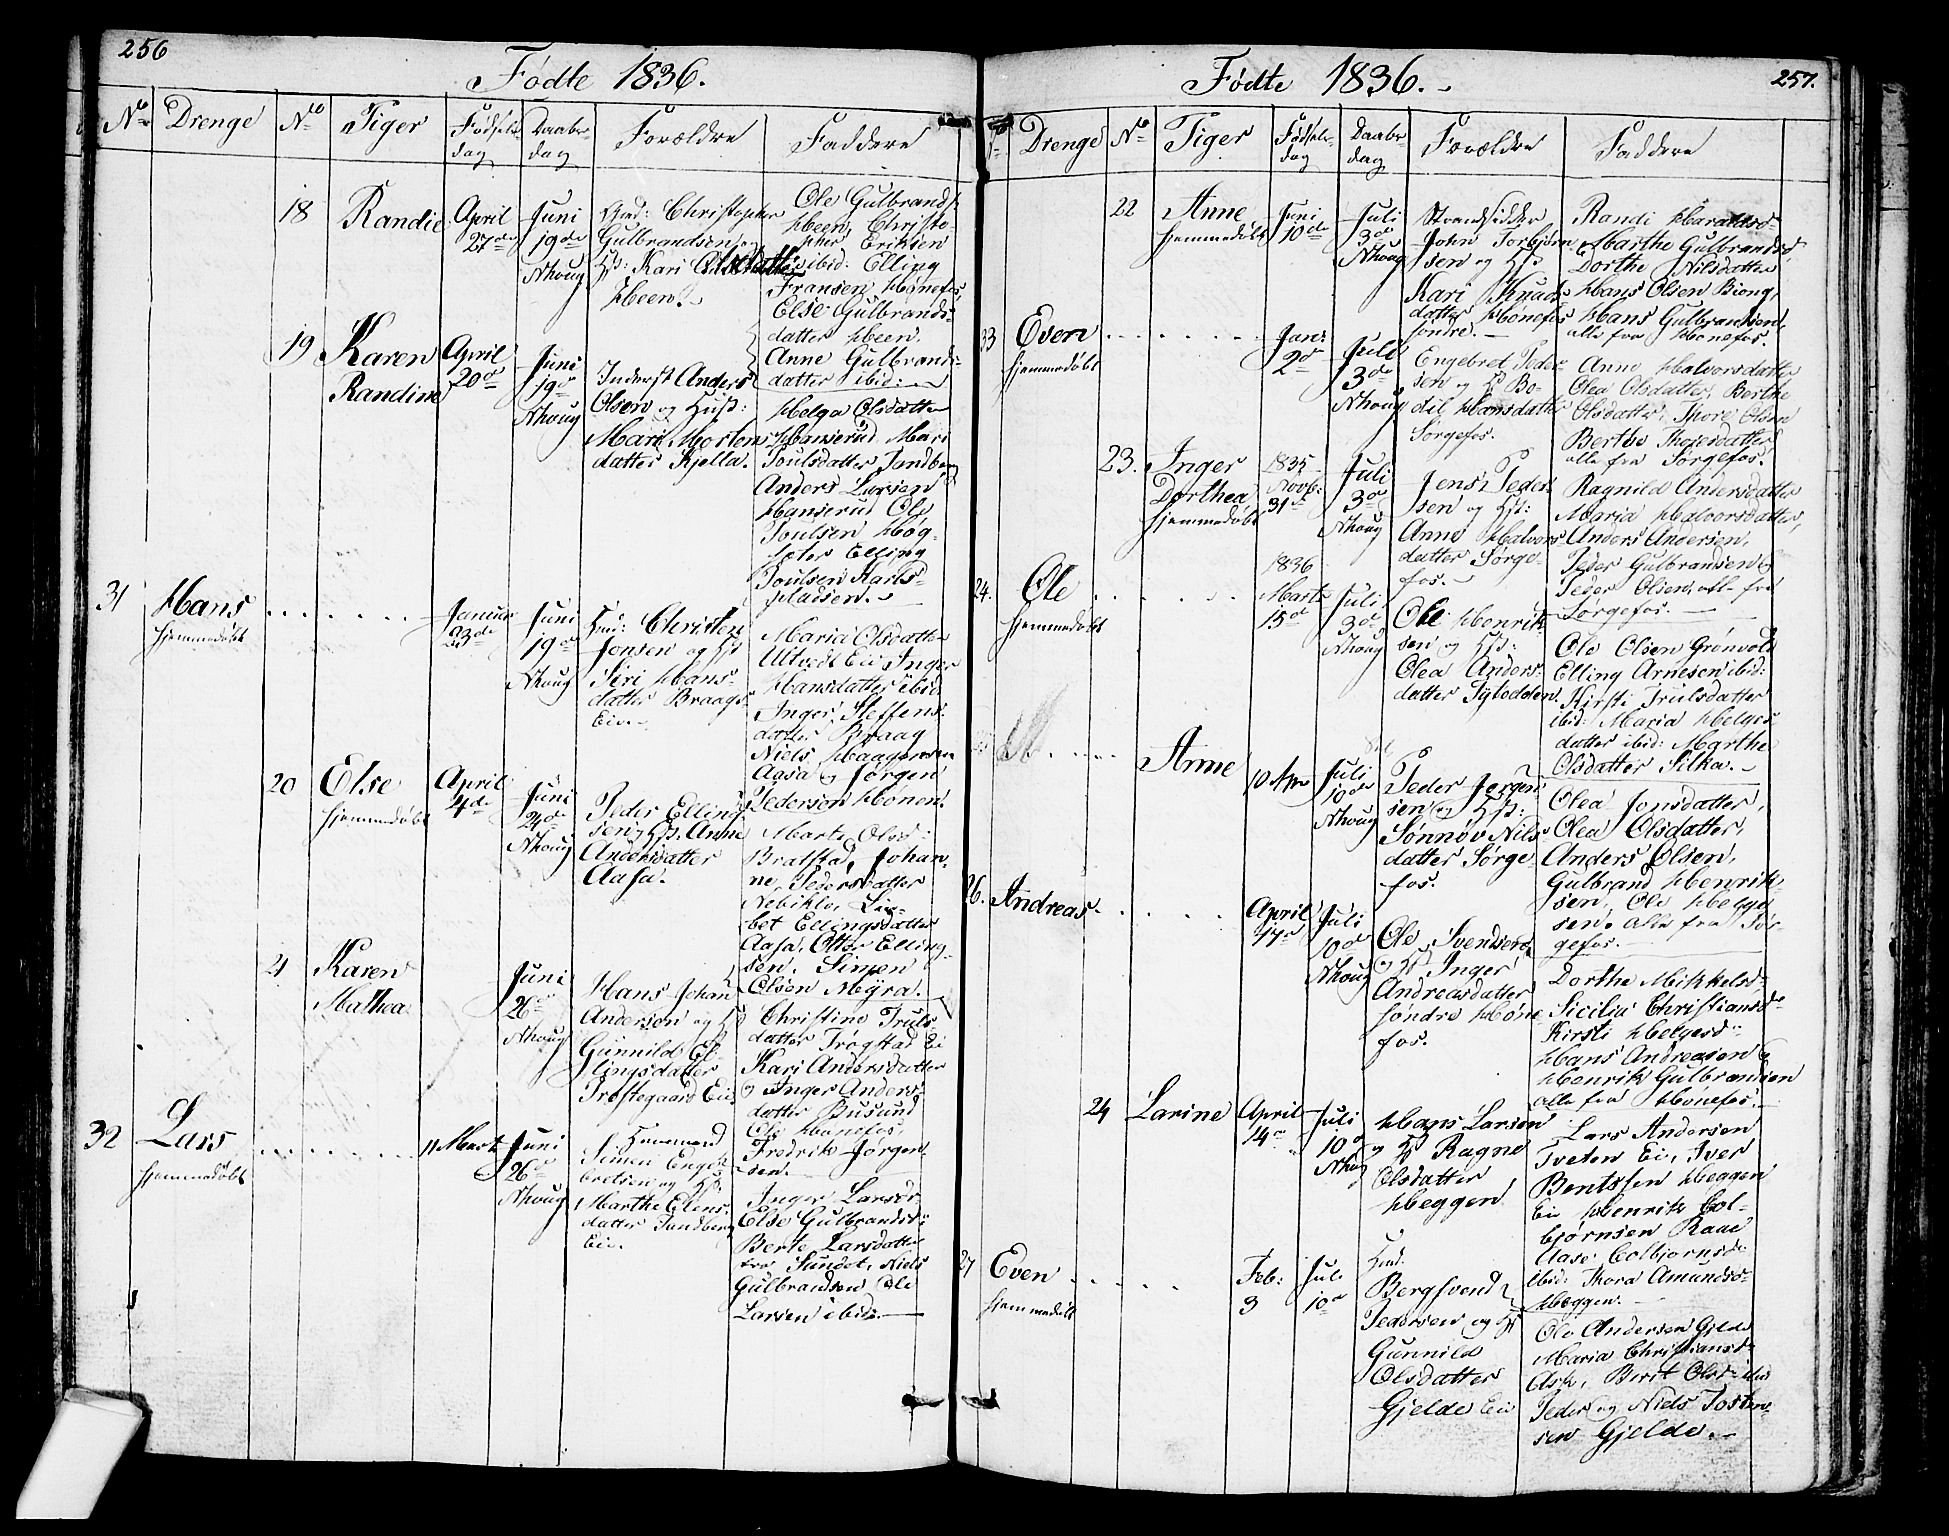 256
Fødte 1836.
No Drenge No Piger Fødsels dag Daabs dag Forældre Faddere
18 Randie April 27de Juni 19de Nhoug
Gmd: Christopher
Gulbrandsen og
Hst: Kari Olsdatter
Heen.
Ole Gulbrands.
Heen, Christo-
pher Eriksen
ibid: Elling
Fransen Hønefos,
Else Gulbrands-
datter Heen.
Anne Gulbrands-
datter ibid:
19 Karen Randine April 20de Juni 19de Nhoug
Inderst Anders
Olsen og Hust:
Mari Mortens-
datter Kjella.
Helga Olsdatter
Hanserud Mari
Poulsdatter Tandberg
Anders Larsen
Hanserud Ole
Poulsen Høg-
Elling
Poulsen Karls-
pladsen.
31 Hans hjemmedøbt Januar 23de Juni 19de Nhoug
Hmd: Christen
Jonsen og Hst
Siri Hans-
datter Braags-
Eie.
Maria Olsdatter
Ultvedt Eie Inger
Hansdatter ibid:
Inger Steffens-
datter Braag
Niels Haagensen
Aasa og Jørgen
Pedersen Hønen.
20 Else hjemmedøbt April 4de Juni 24de Nhoug
Peder Elling-
sen Hst. Anne
Andersdatter
Aasa.
Marte Olsd:
Bratstad, Johan-
ne Pedersdatter
Lis-
bet Ellingsdatter
Aasa, Otter Elling-
sen. Simen
Olsen Mýra.
21 Karen Mathea Juni 26de Nhoug
Hans Johan
Andersen og Hst
Gunnild El-
lingsdatter
Prestegaard Eie
Christine Truls-
datter Trøgstad Ei
Kari Andersdatter
og Inger Anders-
datter Busund
Ole Hønefos
Fredrik Jørgen-
sen.
32 Lars hjemmedøbt 11 Mart Juni 26de Nhoug
Huusmand
Simen Enge-
bretsen og Hst.
Marthe Elens-
datter Tandberg
Eie.
Inger Larsd:
Else Gulbrandsd:
Berte Larsdatter
fra Sundet, Niels
Gulbrandsen Ole
Larsen ibid:
257.
Fødte 1836.
Drenge No Piger Fødsels dag Daabs dag Forældre Faddere
22 Anne hjemmedøbt Juni 10de Juli 3de Nhoug
Strandsidder
John Torbjørn-
sen og Hst
Kari Knuds-
datter Hønefos
søndre.
Randi Haraldsd-
Marthe Gulbrandsd
Dorthe Nilsdatter
Hans Olsen Biong,
Hans Gulbrandsen,
alle fra Hønefos.
23 Even hjemmedøbt Jan: 2de Juli 3de Nhoug
Engebret Peder-
sen og Hst Bo-
dil Hansdatter
Sørgefos.
Anne Halvorsdatter
Olea Olsdatter, Berthe
Olsdatter, Thore Olsen
Berthe Thoresdatter
alle fra Sørgefos.
23. Inger Dorthea hjemmedøbt 1835 Novb: 31te Juli 3de Nhoug
Jens Peder-
sen og Hst:
Anne Halvors-
datter Sørge-
fos.
Ragnild Andersdatter
Maria Halvorsdatter,
Anders Andersen,
Peder Gulbrandsen og
Peder Olsen, alle fra
Sørgefos.
24. Ole hjemmedøbt 1836 Marts 15de Juli 3de Nhoug
Ole Henrik-
sen og Hst:
Olea Anders-
datter
Ole Olsen Grønvold
Elling Arnesen ibid:
Kirsti Trulsdatter
ibid: Maria Helges-
datter ibid: Marthe
Olsdatter Silka.
Anne 10 Apr Juli 10de Nhoug
Peder Jørgen-
sen og Hst:
Sønnøv Nils-
datter Sørge-
fos.
Olea Jonsdatter,
Olea Olsdatter,
Anders Olsen,
Gulbrand Henrik-
sen, Ole Helge-
sen, alle fra Sør-
gefos.
26. Andreas. April 17de Juli 10de Nhoug
Ole Svendsen
og Hst Inger
Andreasdatter
søndre Høne-
fos.
Dorthe Mikkelsd-
Sicilia Christiansd-
Kirsti Helgesd:
Hans Andreasen og
Henrik Gulbrandsen
alle fra Hønefos.
24 Larine April 14de Juli 10de Nhoug
Hans Larsen
og Hst Ragne
Olsdatter
Heggen
Lars Andersen
Tveten Ei, Iver
Bentssen Heggen
Eie Henrik Col-
bjørnsen Raae
Aase Colbjørnsd-
ibid: Thora Amundsd-
Heggen.
27 Even hjemmedøbt Feb: 3 Juli 10de
Hmd.
Bergsvend
Pedersen og Hst
Gunnild
Olsdatter
Gjelde Eie
Ole Andersen Gjelde
Maria Christiansd-
Ask, Berit Olsd- ibid
Peder og Niels Josten-
sen Gjelde.